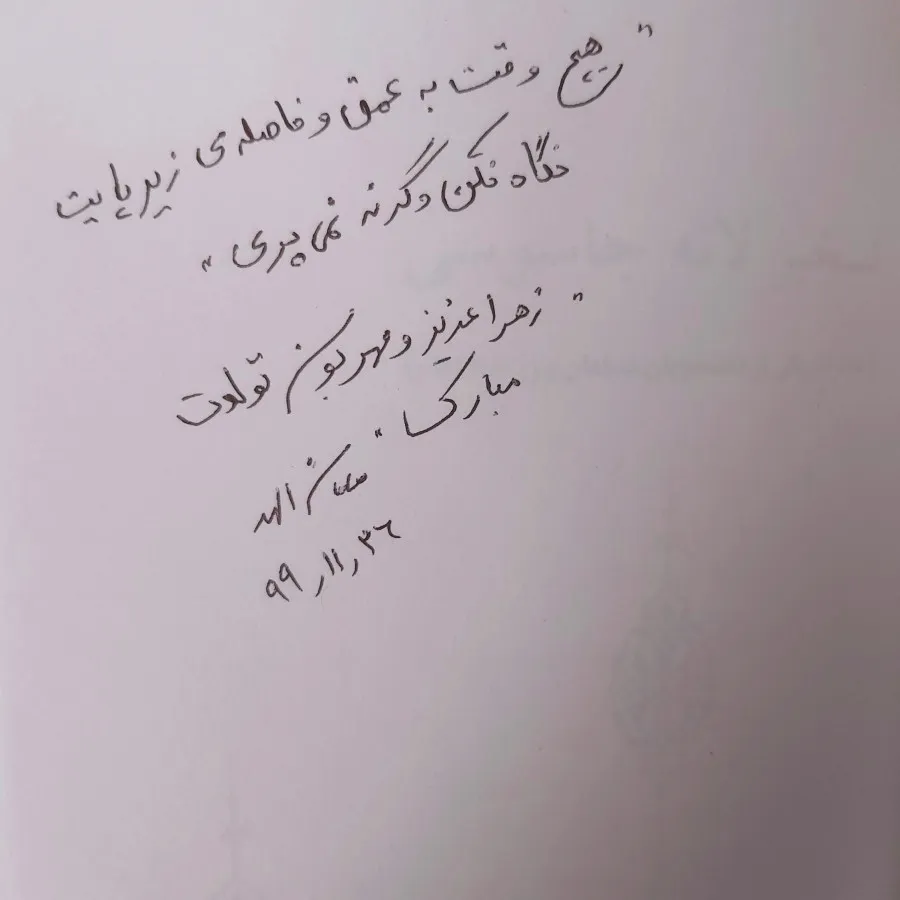 " هیچ وقت به عمق و فاصله‌ی زیر پایت
نگاه نکن وگرنه نمی پری "
" زهرا عزیز و مهربون تولدت
مبارک "
الهه
۹۹٫۱۱٫۲۶